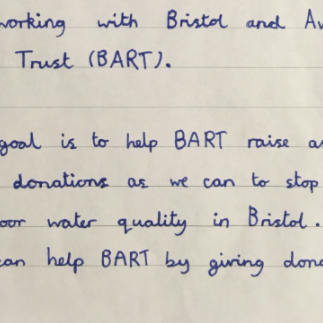 working with Bristol and Av
Trust (BART).
goal is to help BART raise as
donations as we can to stop
oor water quality in Bristol.
can help BART by giving dona